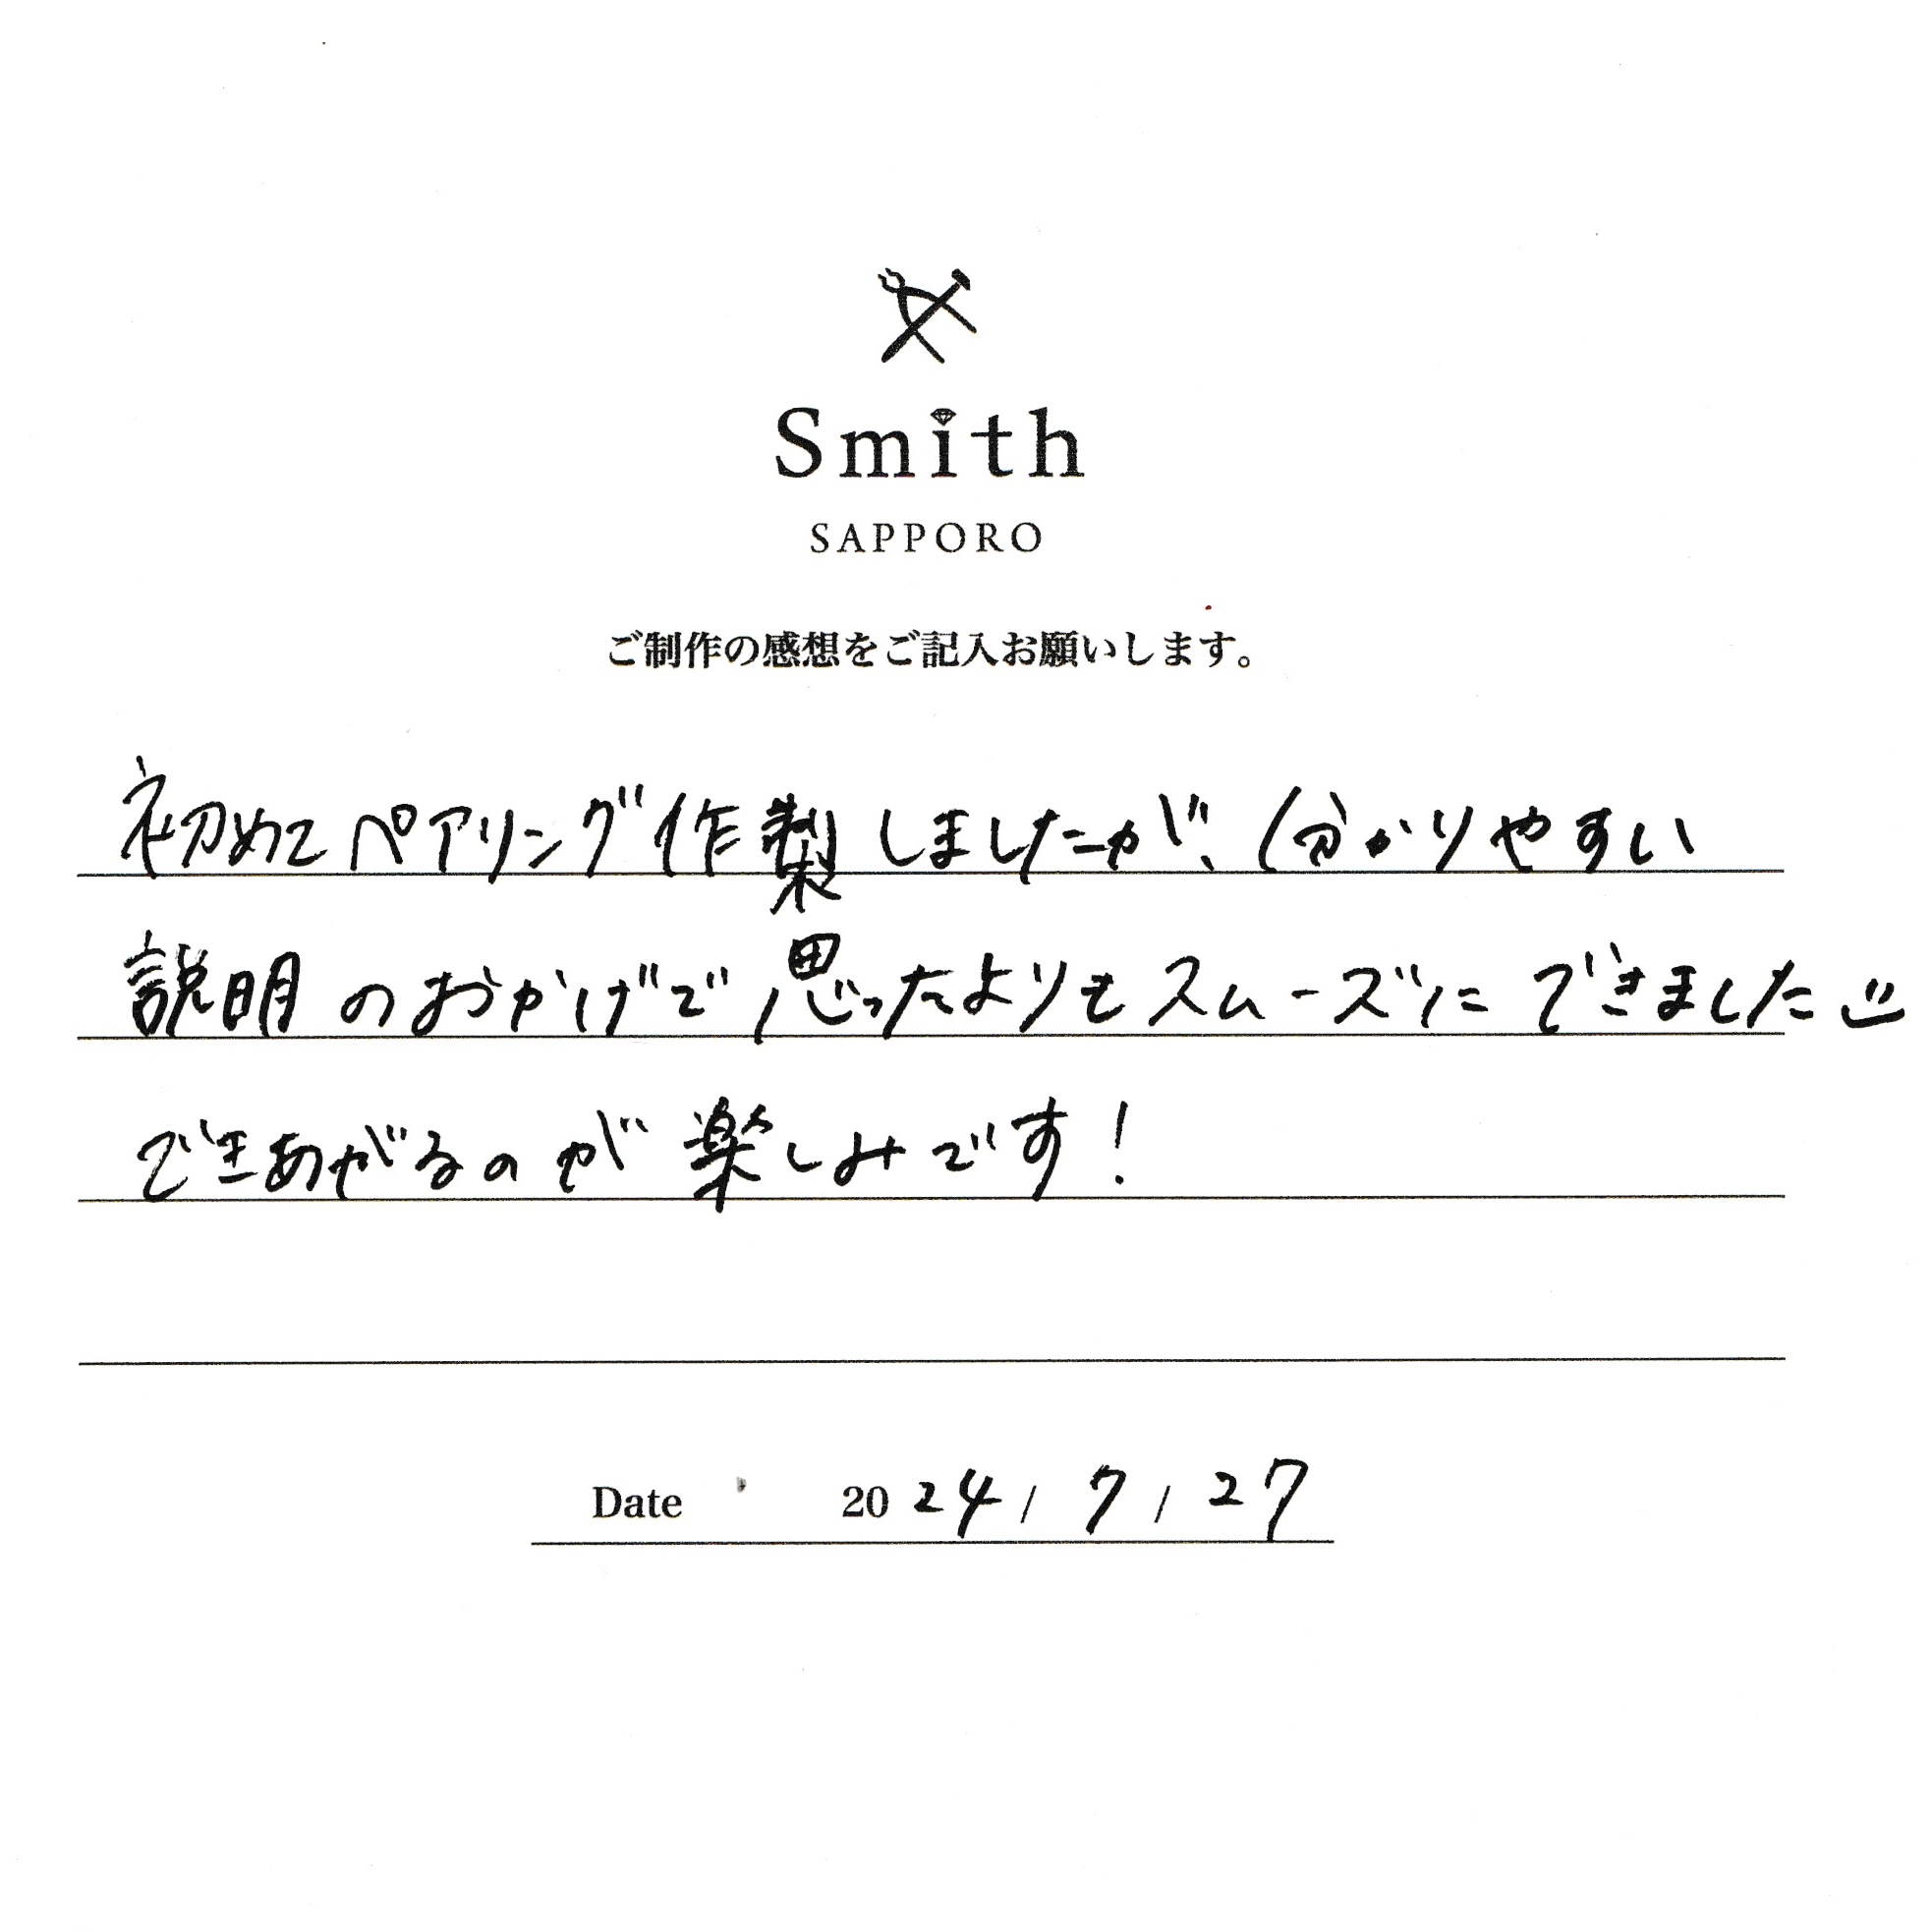 Smith
SAPPORO
ご制作の感想をご記入お願いします。
初めてペアリング作製しましたが、分かりやすい
説明のおかげで思ったよりもスムーズにできました
できあがるのが楽しみです!
Date 2024/7/27